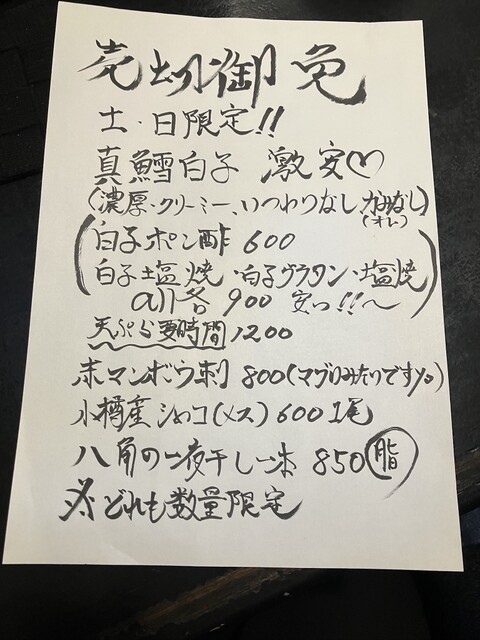 売切御免
土・日限定!!
真鱈白子 激安♡
(濃厚・クリーミー、いつわりなしかみなし)
(オレ)
白子ポン酢 600
白子塩焼・白子グラタン・塩焼
all各900 安っ!!〜
天ぷら要時間 1200
赤マンボウ刺 800(マグロみたいですよ)
小樽産シャコ(メス)600 1尾
八角の一夜干し一本 850 脂
※どれも数量限定